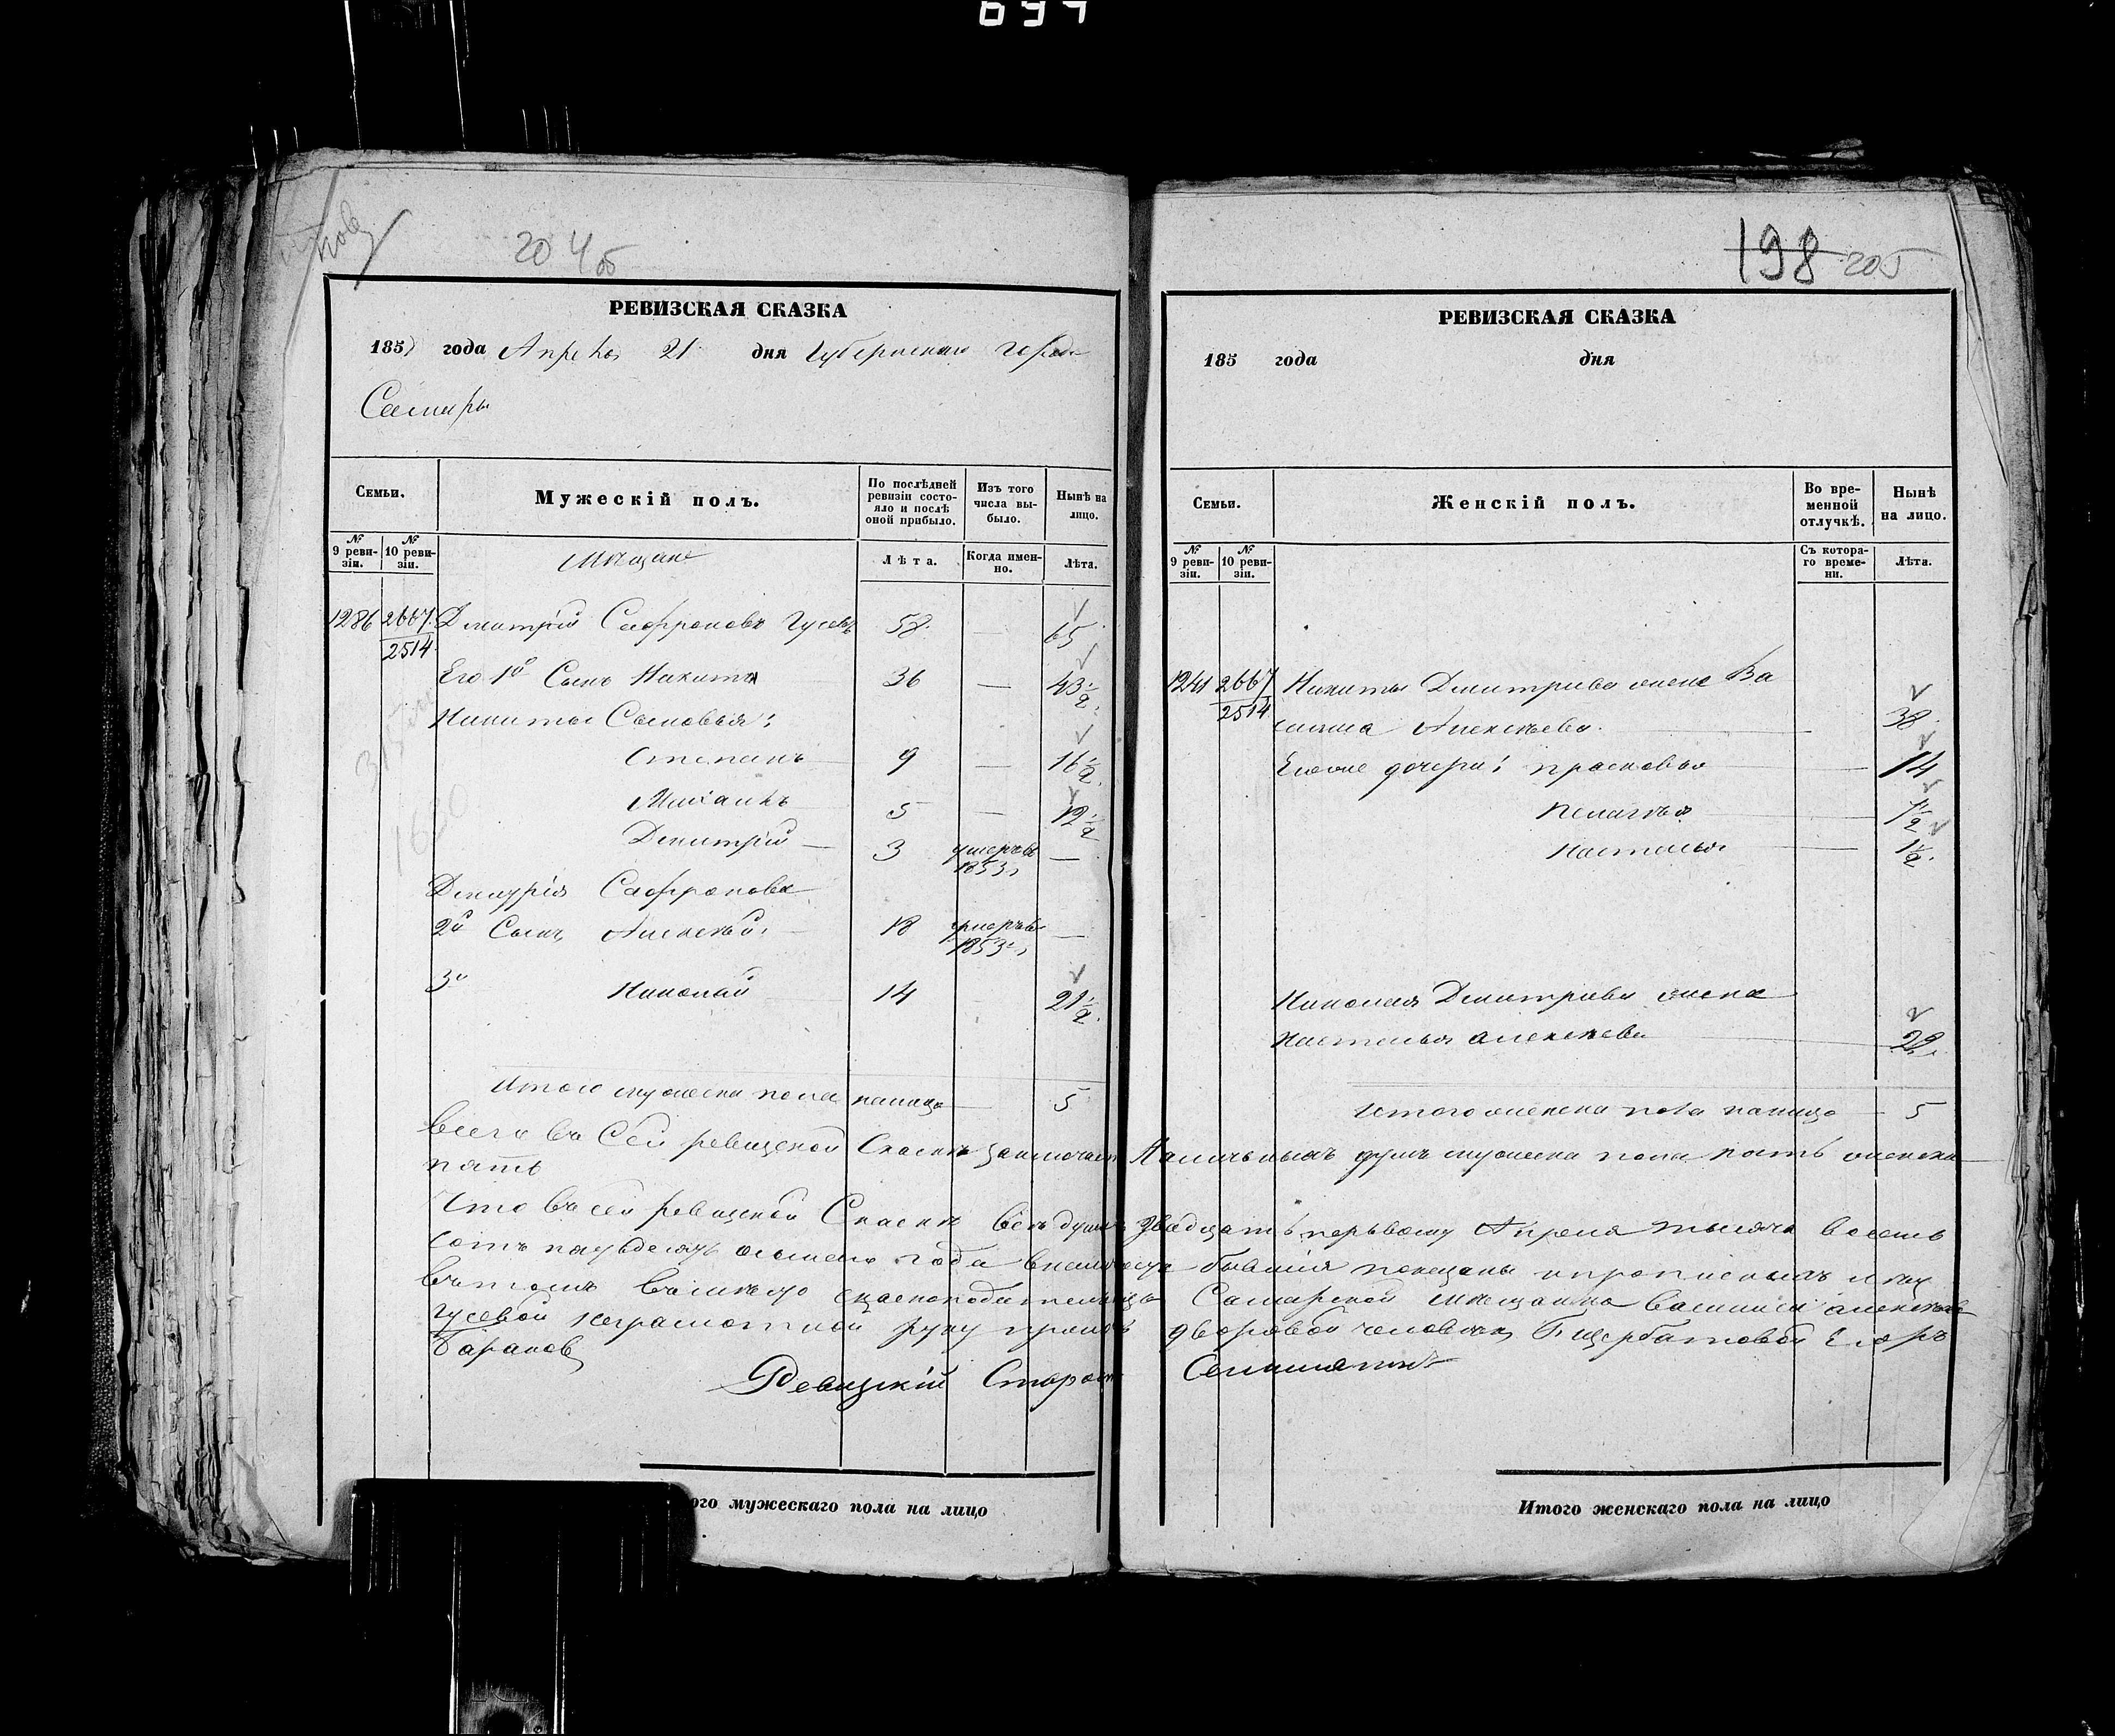 694
20 4 об
198 205
РЕВИЗСКАЯ СКАЗКА
185 года Апреля 21 дня Губернскаго города
Самары
Семьи.
Мужескій полъ.
По послѣдней ревизіи состояло и послѣ оной прибыло.
Изъ того числа выбыло.
Нынѣ на лицо.
№ 9 ревизіи.
№ 10 ревизіи.
Лѣта.
Когда именно.
Лѣта.
Мѣщане
1286 2667/2514 Дмитрій Сафроновъ Гусевъ 58 — 65
Его 1й Сынъ Никита 36 — 43 1/2
Никиты Сыновья:
Степанъ 9 — 16 1/2
Михаилъ 5 — 12 1/2
Дмитрій — 3 умеръ въ 1853 г —
Дмитрія Сафронова
2й Сынъ Алексѣй 18 умеръ въ 1853 г —
3й Николай 14 21 1/2
Итого мужеска пола налицо 5
РЕВИЗСКАЯ СКАЗКА
185 года дня
Семьи.
Женскій полъ.
Во временной отлучкѣ.
Нынѣ на лицо.
№ 9 ревизіи.
№ 10 ревизіи.
Съ котораго времени.
Лѣта.
1241 2667/2514 Никиты Дмитрива жена Ва
силиса Алексѣева. 38
Ево дочери: прасковья 14
Пелагѣя 7 1/2
Настасья 1 1/2
Николая Дмитрива жена
Настасья алексѣева 22
Итого женска пола налицо 5
Всего въ Сей ревизской Сказкѣ заключает Наличныхъ душъ мужеска пола пять женска
пять
Что въ сей ревизской Сказкѣ всѣ души двадцать перьвому Апреля тысяча восемь
сотъ года бывшія показаны
въ томъ Самарской мѣщанка василиса алексѣева
Гусевой неграмотной руку приложъ дворовой человекъ Г Щербатовой Егоръ
Барановъ
Ревизскій Староста
Итого мужескаго пола на лицо
Итого женскаго пола на лицо